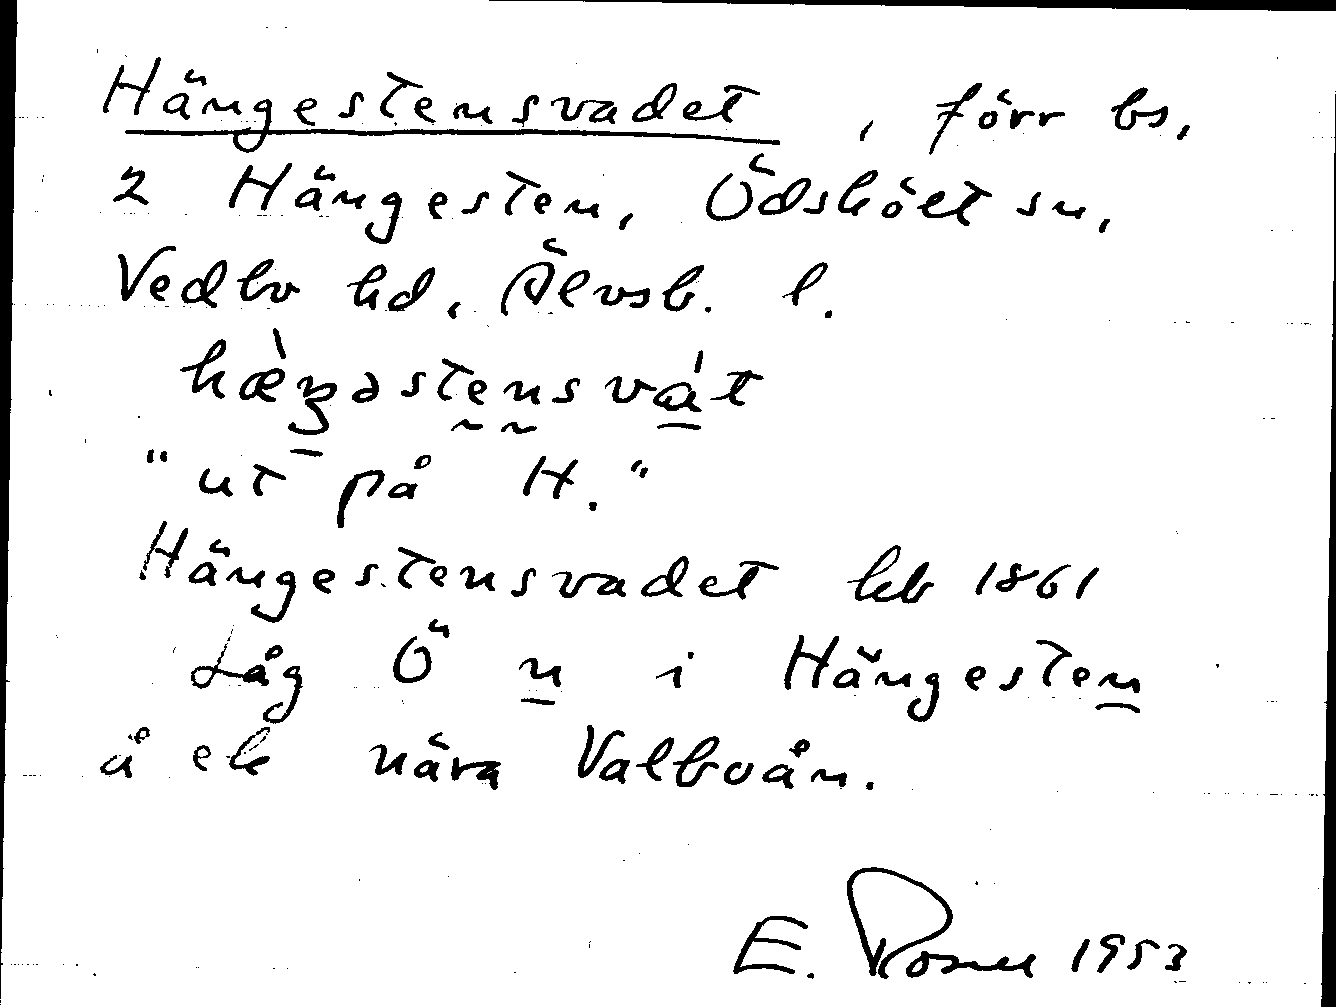 Hängestensvadet, förr bs,
2 Hängesten, Ödskölt sn,
Vedbo hd, Älvsb. l.
"ut på H."
Hängestensvadet hfb 1861
Låg Ö n i Hängesten
å ek nära Valboån.
E. Rosell 1953